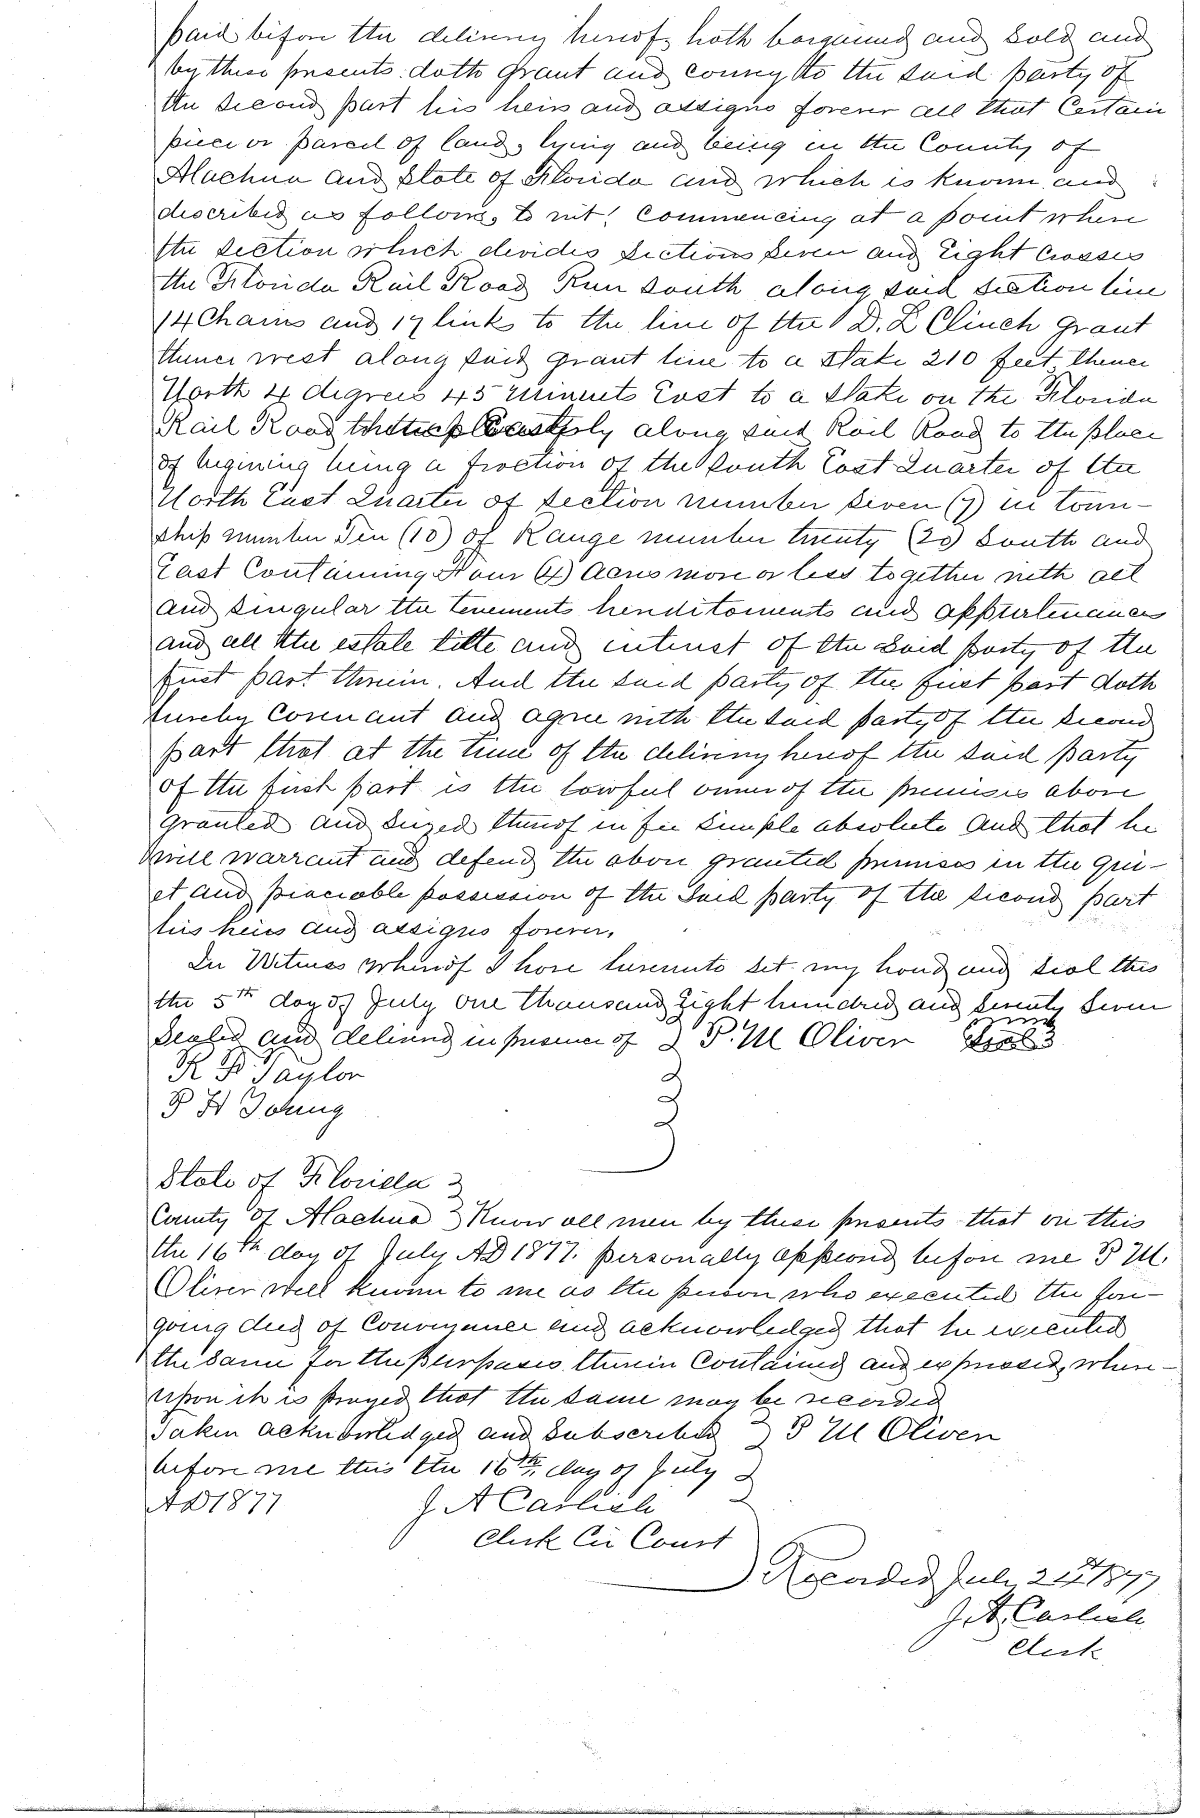 paid before the delivery hereof, hath bargained and sold and
by these presents doth grant and convey to the said party of
the second part his heirs and assigns forever all that Certain
piece or parcel of land, lying and being in the County of
Alachua and State of Florida and which is known and
described as follows, to wit: Commencing at a point where
the section which divides Sections Seven and Eight Crosses
the Florida Rail Road Run south along said section line
14 Chains and 17 links to the line of the D. L Clinch grant
thence west along said grant line to a stake 210 feet, thence
North 4 degrees 45 minuets East to a stake on the Florida
Rail Road Easterly along said Rail Road to the place
of begining being a fraction of the South East Quarter of the
North East Quarter of section number Seven (7) in town-
ship number Ten (10) of Range number twenty (20) South and
East Containing Four (4) Acres more or less together with all
and singular the tenements herditaments and appurtenances
and all the estate title and interest of the said party of the
first part therein. And the said party of the first part doth
hereby Covenant and agree with the said party of the second
part that at the time of the delivery hereof the said party
of the first part is the lawful owner of the premises above
granted and Seized thereof in fee simple absolute and that he
will warrant and defend the above granted premises in the qui-
et and peaceable possession of the said party of the second part
his heirs and assigns forever.
In Witness whereof I have hereunto set my hand and seal this
the 5th day of July one thousand Eight hundred and Seventy Seven
Sealed and delivered in presence of P. M Oliver Seal
R B Taylor
P H Young
State of Florida
County of Alachua Know all men by these presents that on this
the 16th day of July AD 1877. personally appeared before me P M.
Oliver well known to me as the person who executed the fore-
going deed of Conveyance and acknowledged that he executed
the same for the purposes therein Contained and expressed, where-
upon it is prayed that the same may be recorded
Taken acknowledged and Subscribed P M Oliver
before me this the 16th, day of July
AD 1877 J. A Carlisle
Clerk Cir Court
Recorded July 1877
J. A. Carlisle
Clerk